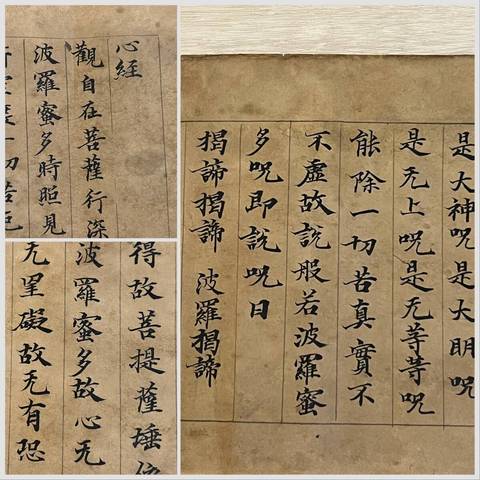 心經
觀自在菩薩行深
波羅蜜多時照見
得故菩提薩埵
波羅蜜多故心无
无罣礙故无有恐
是大神呪是大明呪
是无上呪是无等等呪
能除一切苦真實不
不虛故說般若波羅蜜
多呪即說呪曰
揭諦揭諦 波羅揭諦